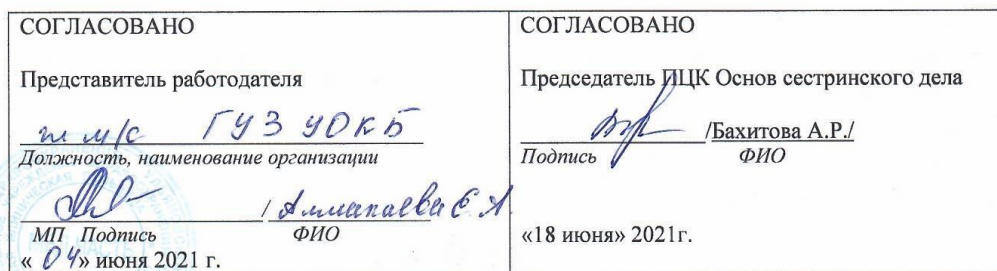 СОГЛАСОВАНО
Представитель работодателя
гл м/с ГУЗ УОКБ
Должность, наименование организации
/
МП Подпись ФИО
« 04» июня 2021 г.
СОГЛАСОВАНО
Председатель ПЦК Основ сестринского дела
/Бахитова А.Р./
Подпись ФИО
«18 июня» 2021г.